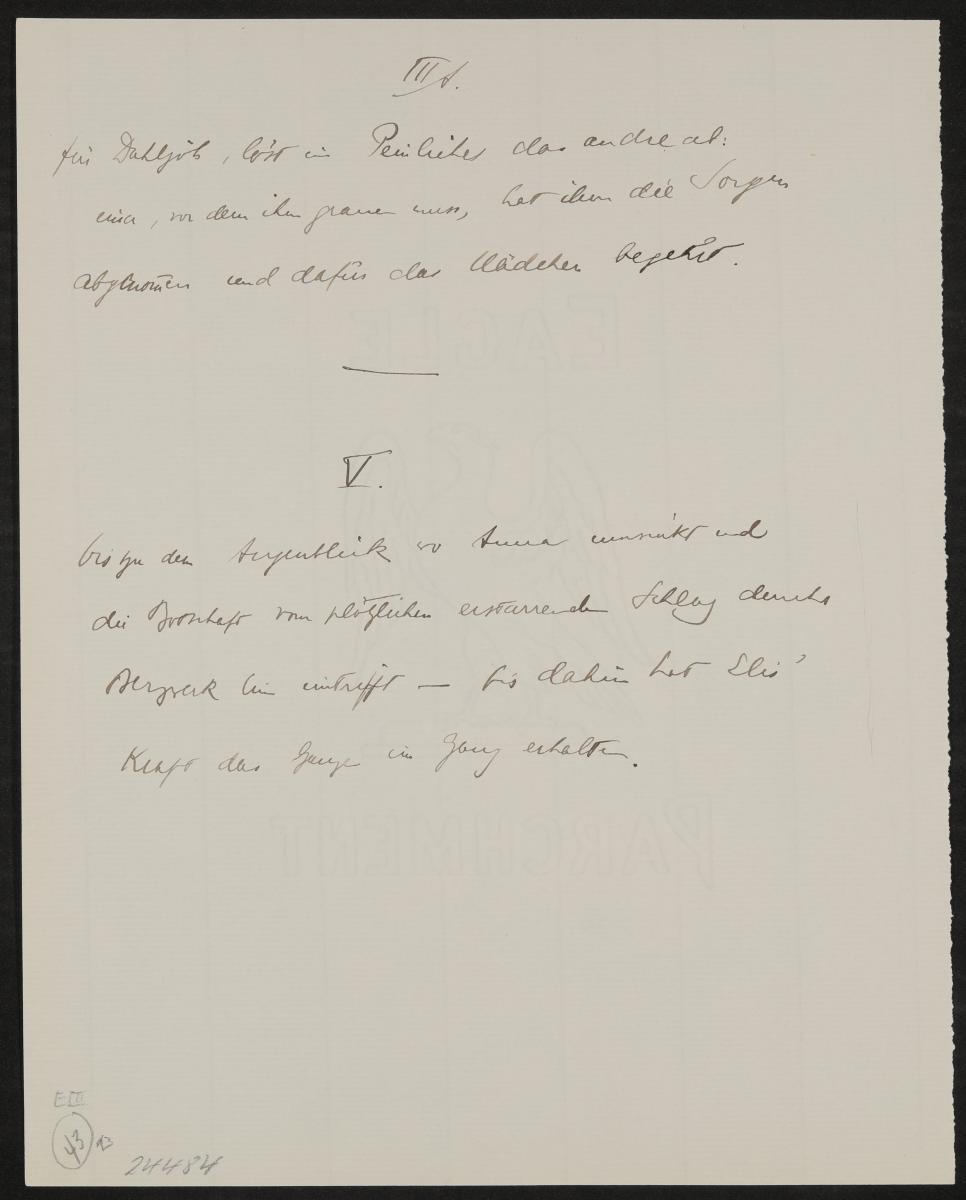 III A.
für Dahljöh, löst ein Peinliches das andre ab:
einer, vor dem ihm grauen muss, hat ihm die Sorgen
abgenommen und dafür das Mädchen begehrt.
V.
bis zu dem Augenblick wo Anna umsinkt und
die Botschaft vom plötzlichen erstarrenden Schlag durchs
Bergwerk hin eintrifft — bis dahin hat Elis'
Kraft das Ganze im Gang erhalten.
EAGLE
PARCHMENT
E III
43
24484